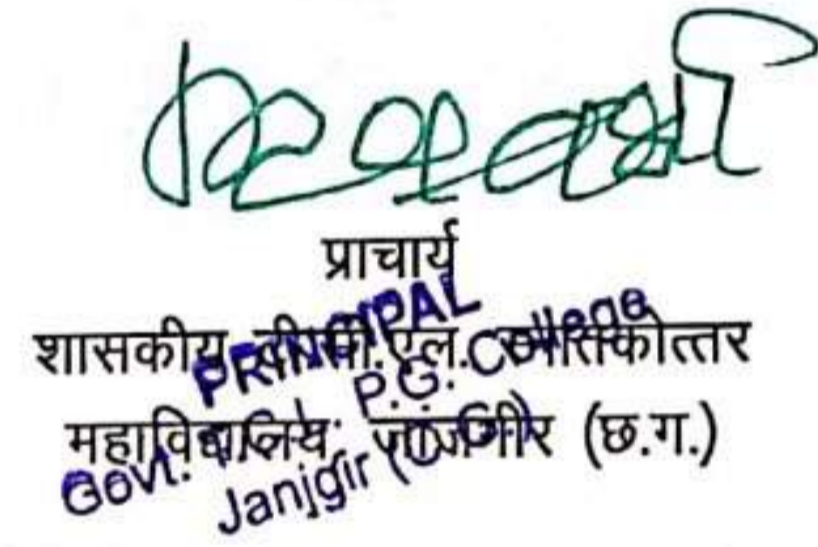 प्राचार्य
शासकीय टी.सी.एल. स्नातकोत्तर
महाविद्यालय जांजगीर (छ.ग.)
PRINCIPAL
Govt. P.G. College
Janjgir (C.G.)